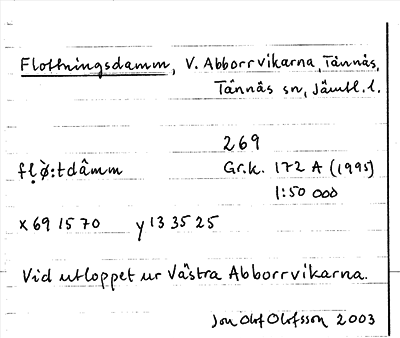 Flottningsdamm, V. Abborrvikarna, Tännäs,
Tännäs sn, Jämtl. l.
269
fḷø̀:tdâmm Gr.k. 172 A (1995)
1:50 000
x 69 15 70 y 13 35 25
Vid utloppet ur Västra Abborrvikarna.
Jon Olof Olofsson 2003